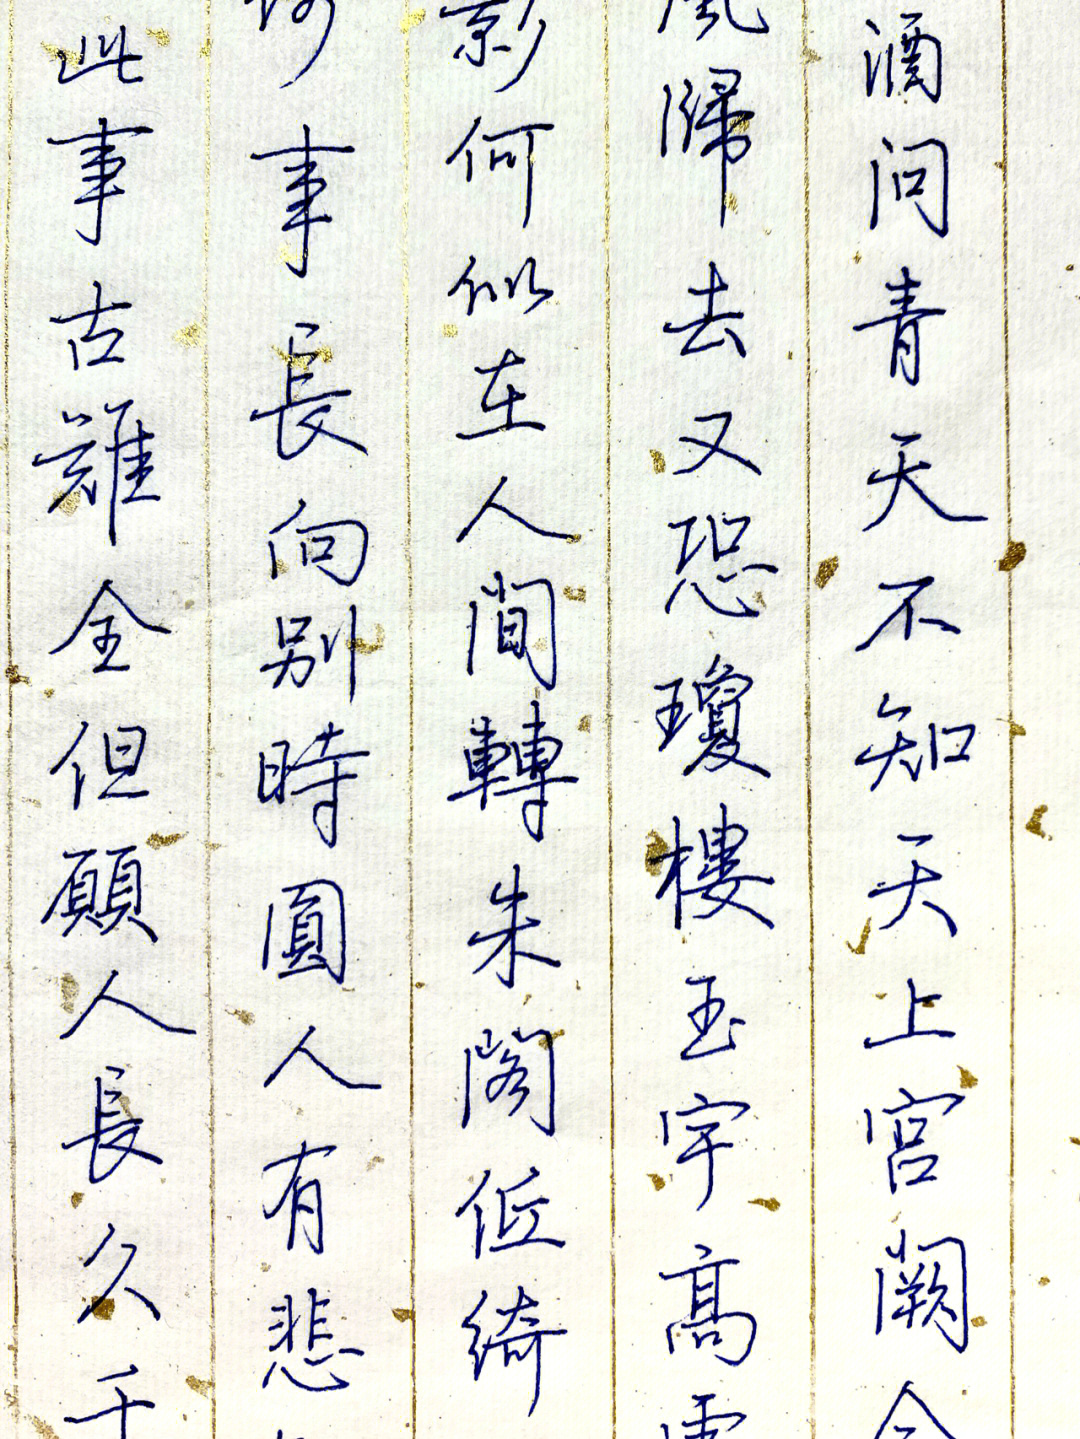 酒问青天不知天上宫阙今
風歸去又恐瓊樓玉宇高
影何似在人間轉朱閣低綺
事長向别時圓人有悲
此事古難全但願人長久千